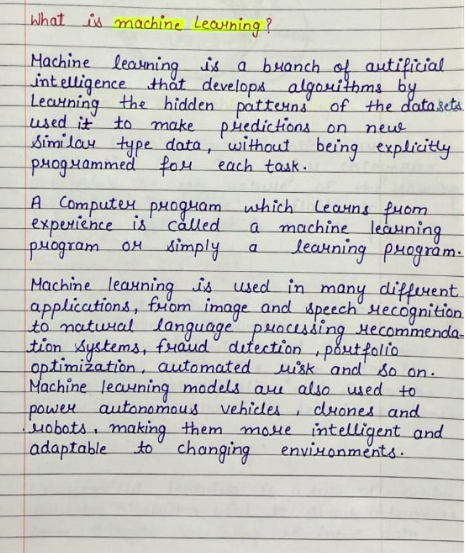 What is machine Learning?
Machine learning is a branch of artificial
intelligence that develops algorithms by
Learning the hidden patterns of the datasets
used it to make predictions on new
similar type data, without being explicitly
programmed for each task.
A Computer program which Learns from
experience is called a machine learning
program or simply a learning program.
Machine learning is used in many different
applications, from image and speech recognition
to natural language processing recommenda-
tion systems, fraud detection, portfolio
optimization, automated risk and so on.
Machine learning models are also used to
power autonomous vehicles, drones and
robots, making them more intelligent and
adaptable to changing environments.